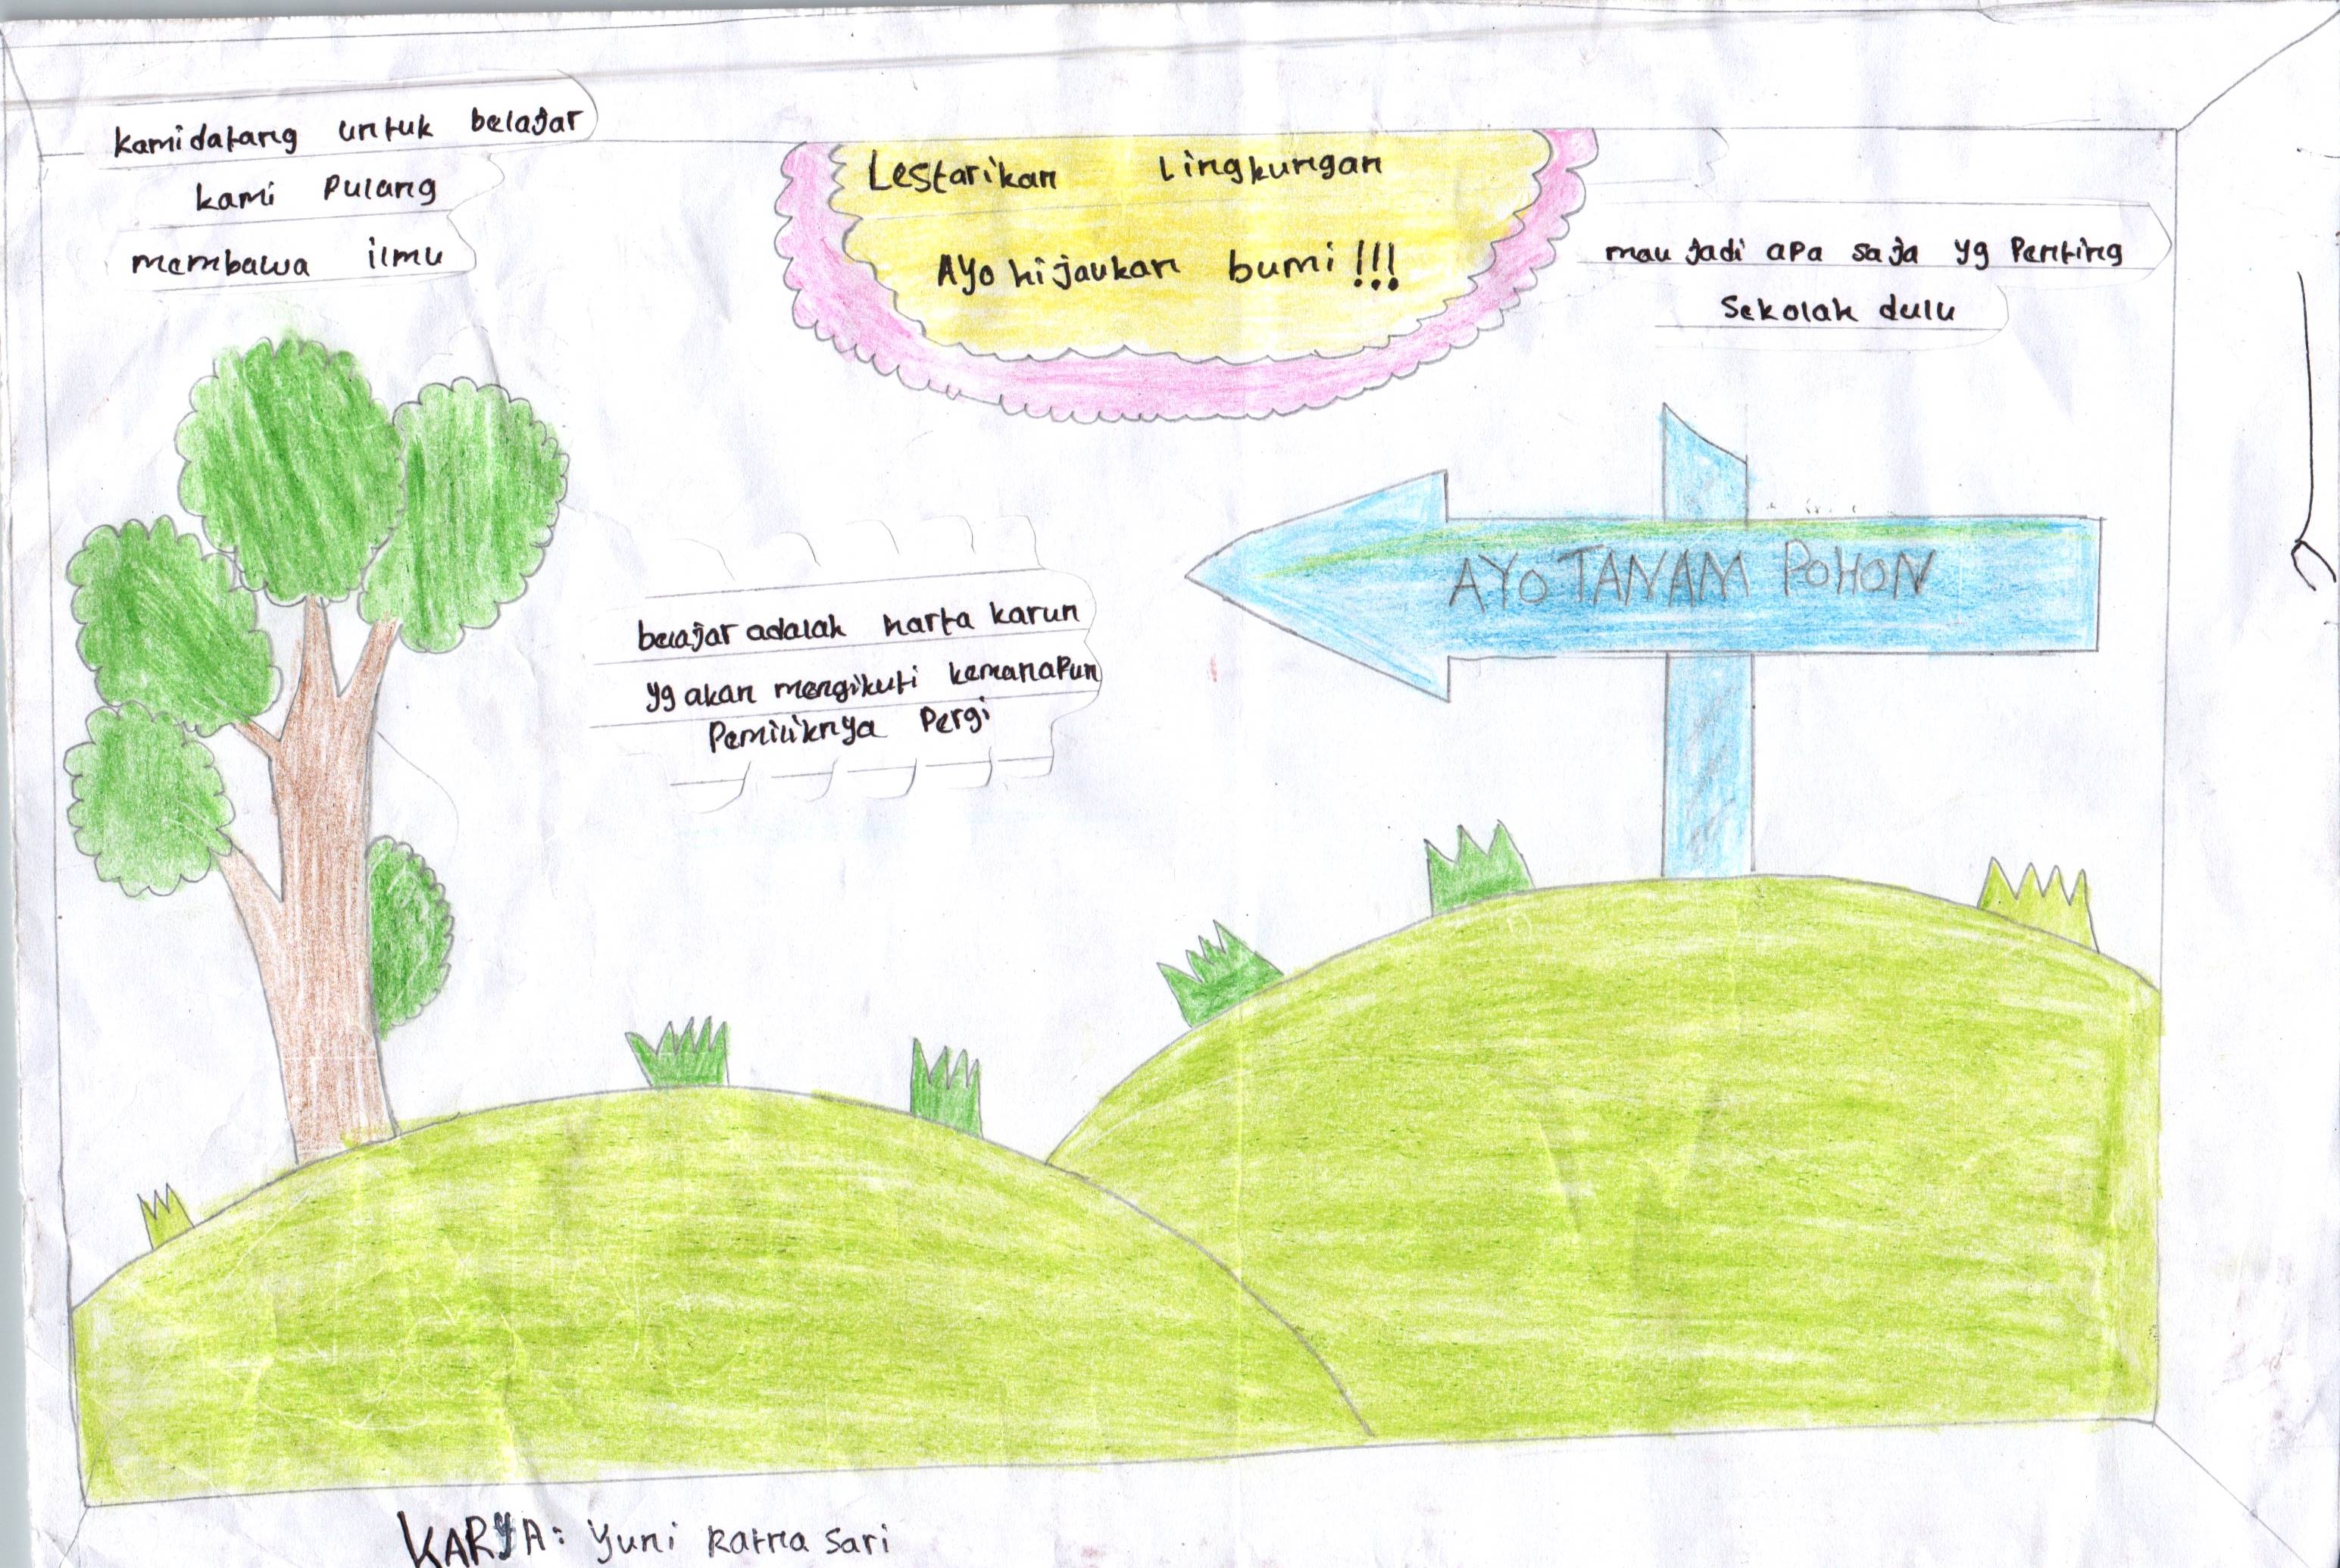 kami datang untuk belajar
kami pulang
membawa ilmu
Lestarikan Lingkungan
AYo hijaukan bumi!!!
mau jadi apa saja yg Penting
Sekolah dulu
AYO TANAM POHON
belajar adalah harta karun
yg akan mengikuti kemanapun
Pemiliknya Pergi
KARYA: Yuni Ratna Sari